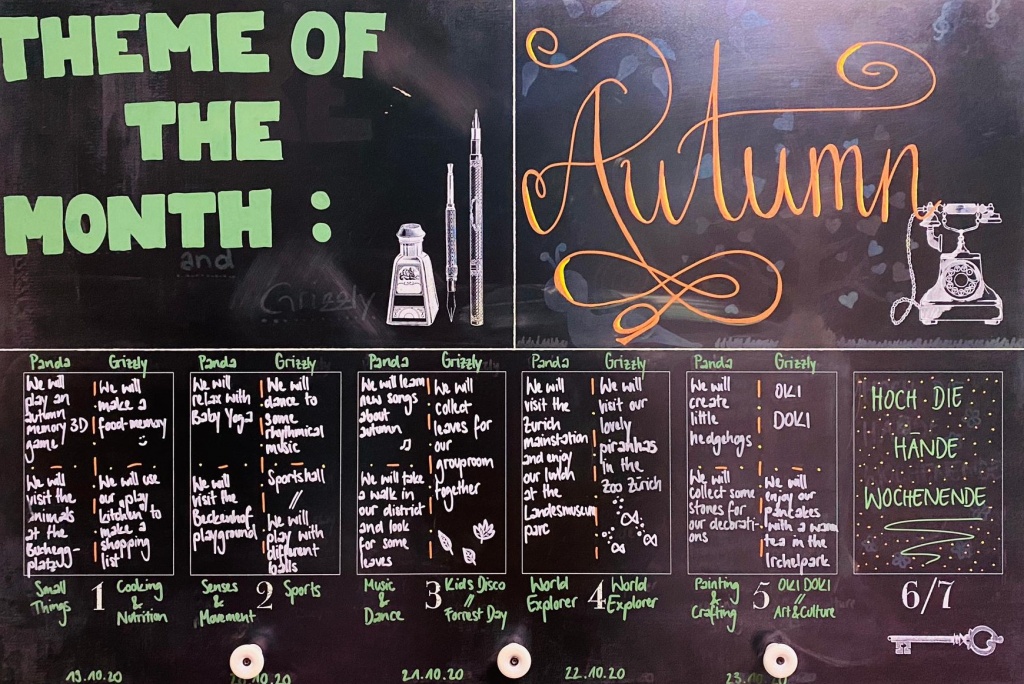 THEME OF
THE
MONTH :
and
Grizzly
Autumn
Panda
Grizzly
We will
play an
autumn
memory 3D
game
We will
make a
food-memory
We will
visit the
animals
at the
Buchegg-
platz
We will use
our play
kitchen to
make a
shopping
list
Small
Things
1
Cooking
&
Nutrition
19.10.20
Panda
Grizzly
We will
relax with
Baby Yoga
We will
dance to
some
rhythmical
music
We will
visit the
Beckenhof
playground
Sportshall
//
We will
play with
different
balls
Senses
&
Movement
2
Sports
20.10.20
Panda
Grizzly
We will learn
new songs
about
autumn
We will
collect
leaves for
our
grouproom
together
We will take
a walk in
our district
and look
for some
leaves
Music
&
Dance
3
Kids Disco
//
Forrest Day
21.10.20
Panda
Grizzly
We will
visit the
Zurich
mainstation
and enjoy
our lunch
at the
Landesmuseum
parc
We will
visit our
lovely
pirahhas
in the
Zoo Zürich
World
Explorer
4
World
Explorer
22.10.20
Panda
Grizzly
We will
create
little
hedgehogs
OKI
DOKI
We will
collect some
stones for
our decorati-
ons
We will
enjoy our
pancakes
with a warm
tea in the
Irchelpark
Painting
&
Crafting
5
OKI DOKI
//
Art&Culture
23.10.20
HOCH DIE
HÄNDE
WOCHENENDE
6/7